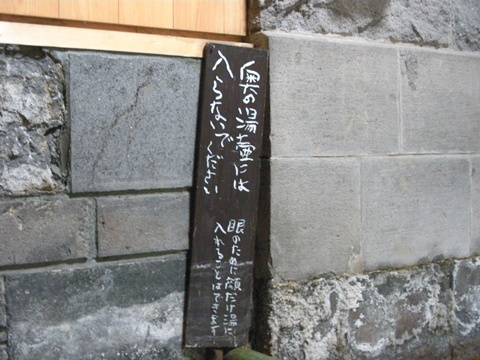 奥の湯壷には
入らないでください
眼のために顔だけ湯に
入れることはできます